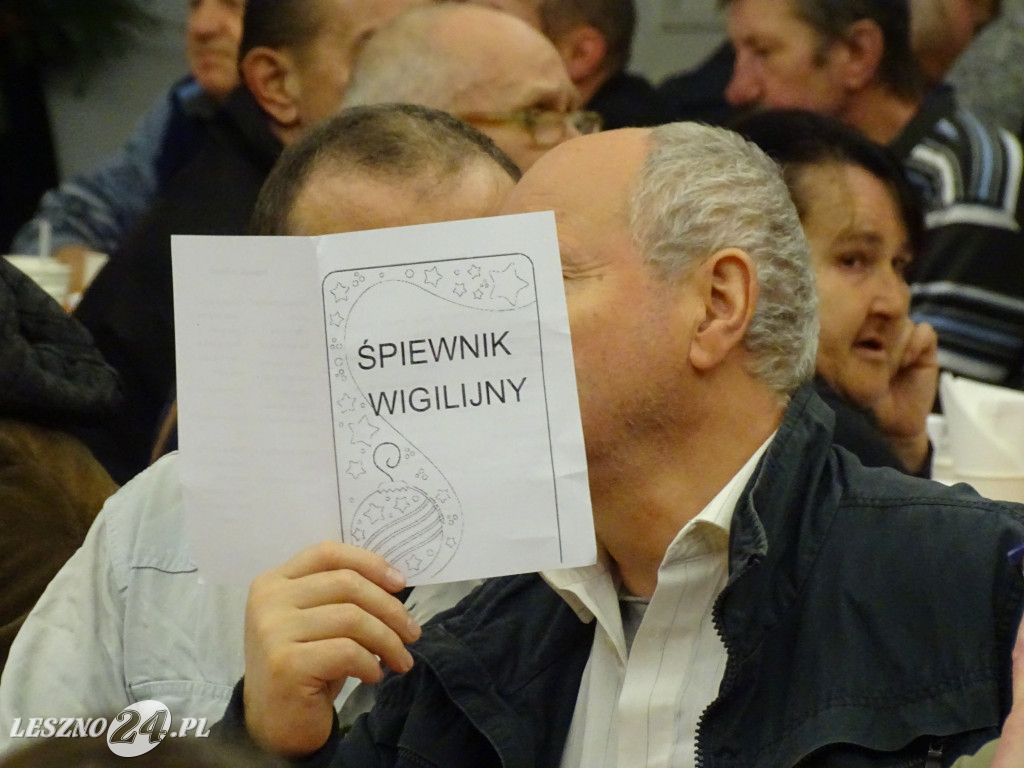 ŚPIEWNIK
WIGILIJNY
LESZNO24.PL